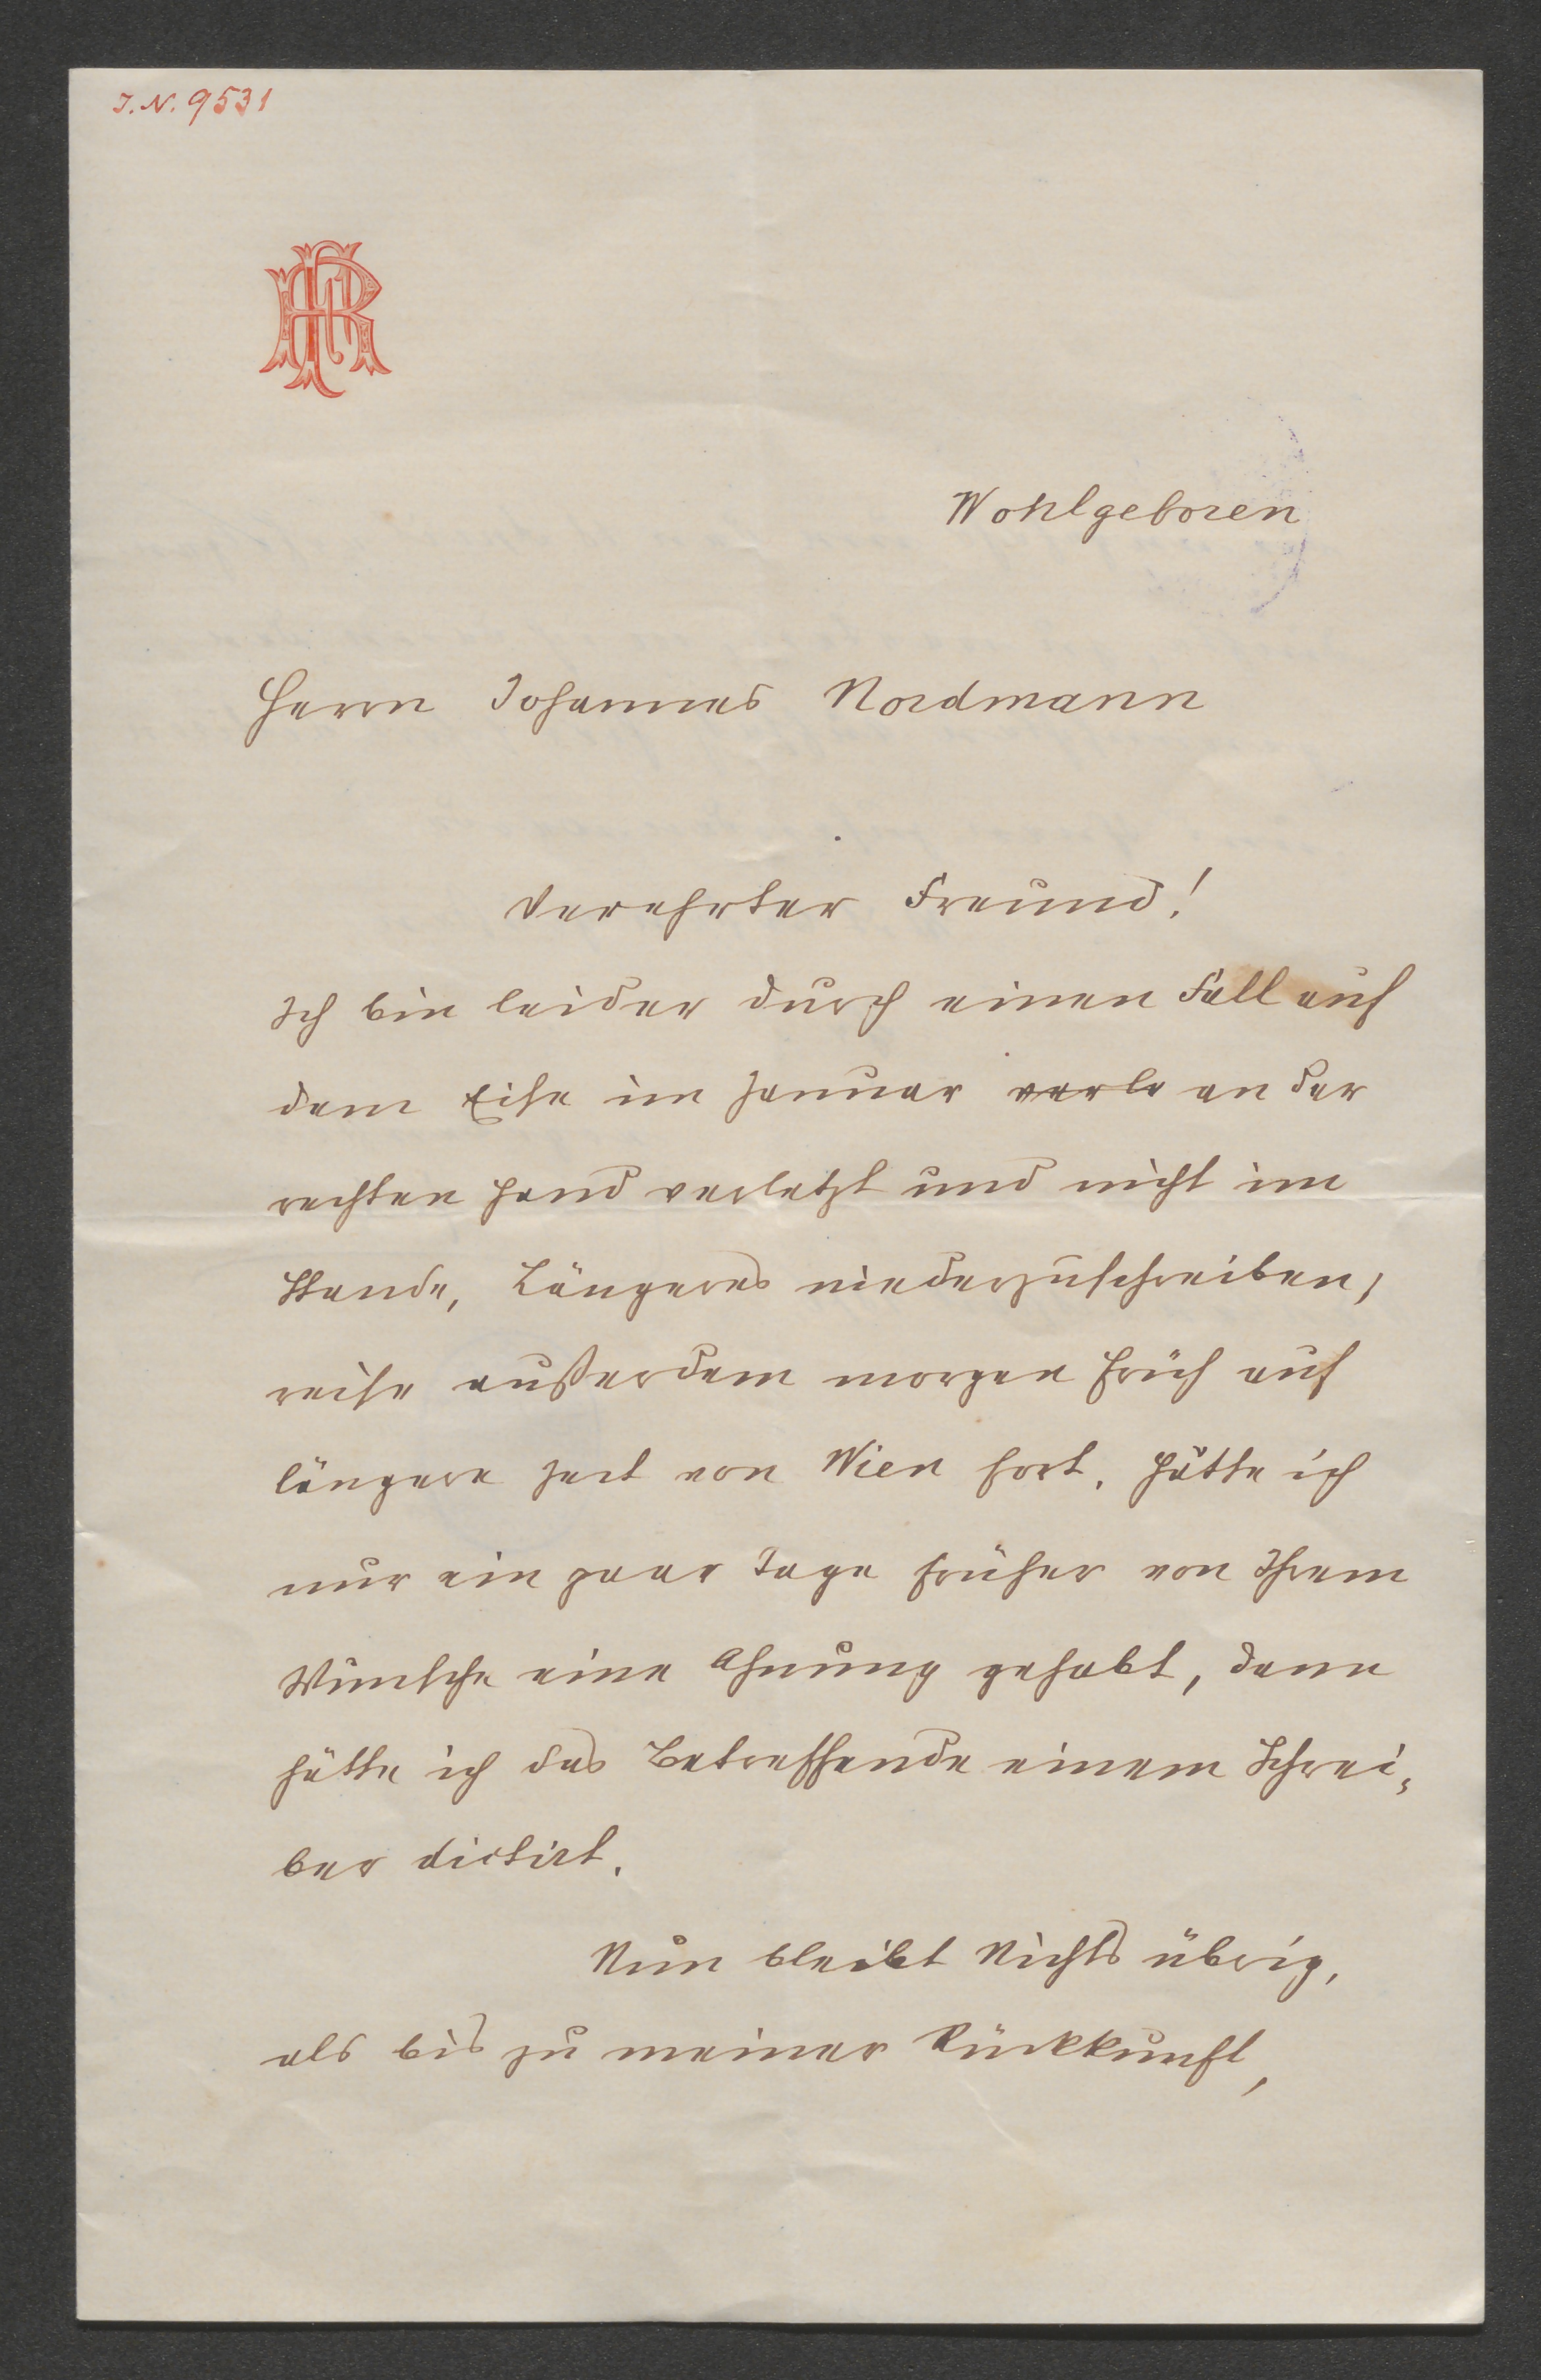 J.N. 9531
Wohlgeboren
Herrn Johannes Nordmann
Verehrter Freund!
Ich bin leider durch einen Fall auf
dem Eise im Januar verle an der
rechten Hand verletzt und nicht im
Stande, Längeres niederzuschreiben,
reise außerdem morgen früh auf
längere Zeit von Wien fort. Hätte ich
nur ein paar Tage früher von Ihrem
Wunsche eine Ahnung gehabt, dann
hätte ich das Betreffende einem Schrei-
ber dictirt.
Nun bleibt Nichts übrig,
als bis zu meiner Rückkunft,